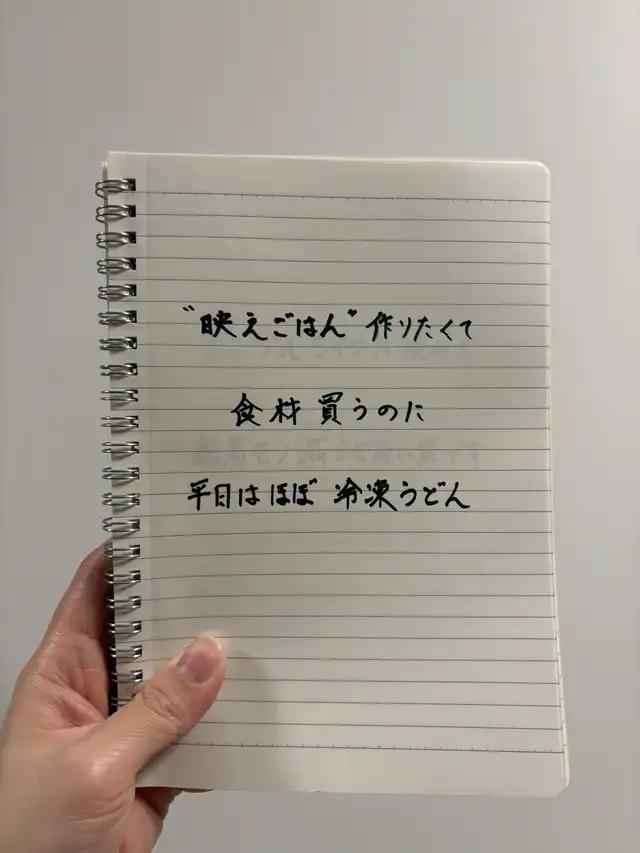 “映えごはん” 作りたくて
食材買うのに
平日はほぼ 冷凍うどん